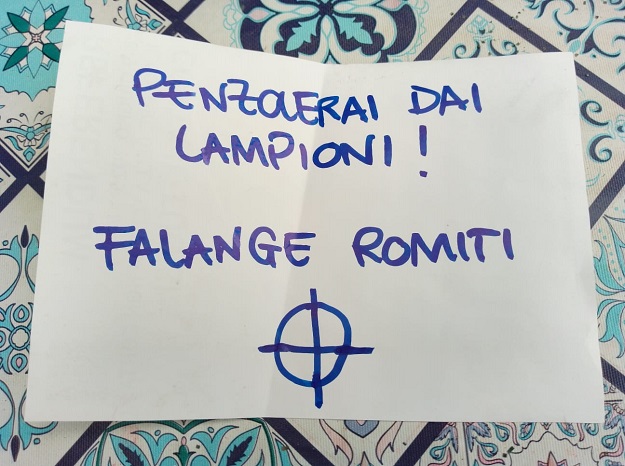 PENZOLERAI DAI
LAMPIONI!
FALANGE ROMITI